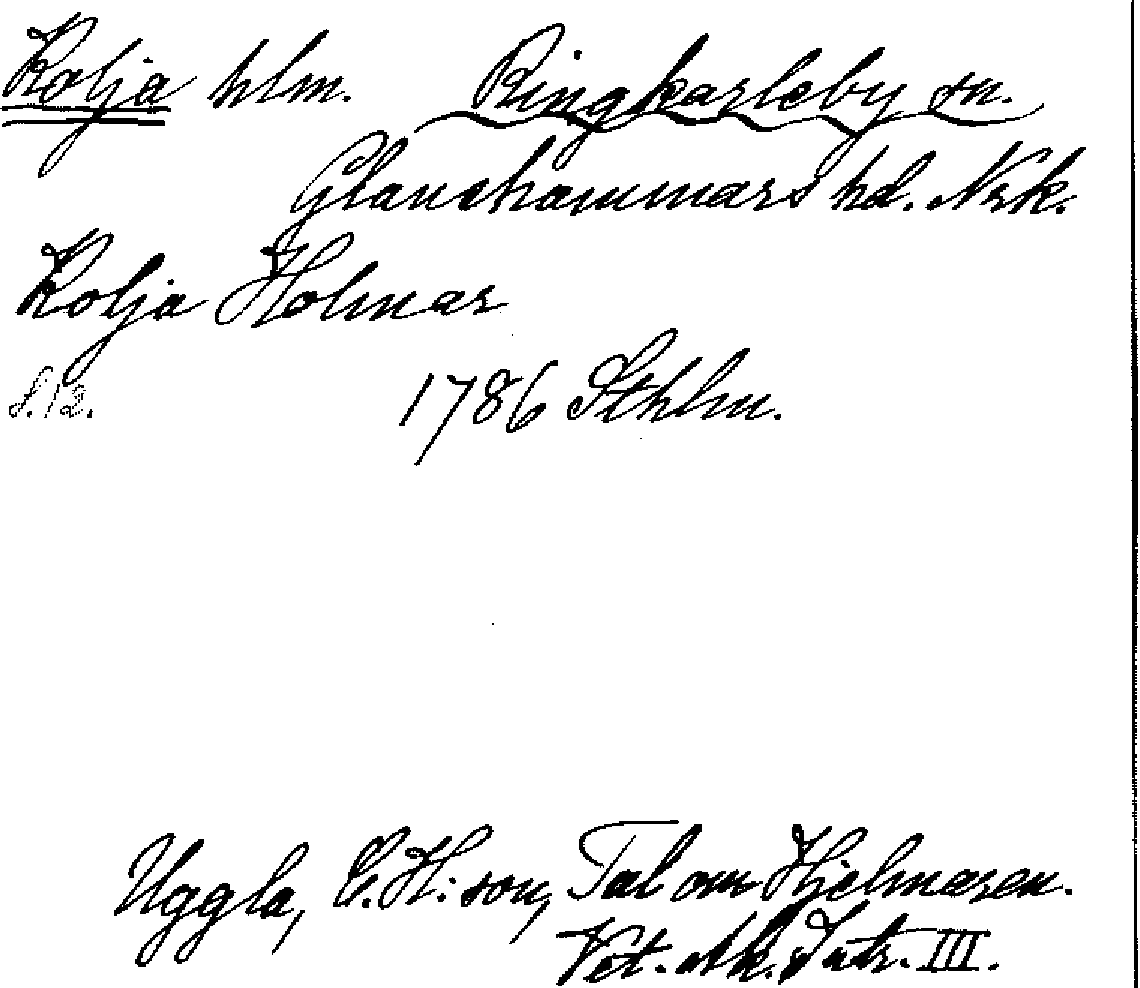 Kolja hlm. Ringkarleby sn.
Glanshammars hd. Nrk.
Kolja Holmar
s. 12. 1786 Sthlm.
Uggla, C. H:son, Tal om Hjelmaren.
Vet. Ak. Intr. III.